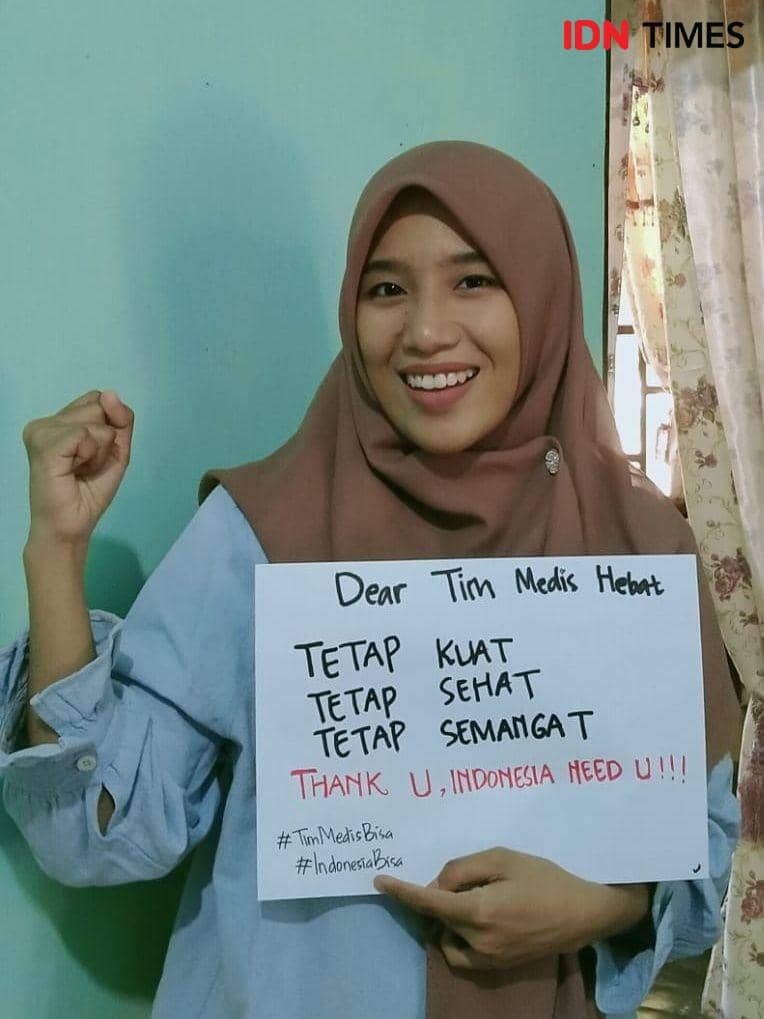 IDN TIMES
Dear Tim Medis Hebat
TETAP KUAT
TETAP SEHAT
TETAP SEMANGAT
THANK U, INDONESIA NEED U!!!
#TimMedisBisa
#IndonesiaBisa